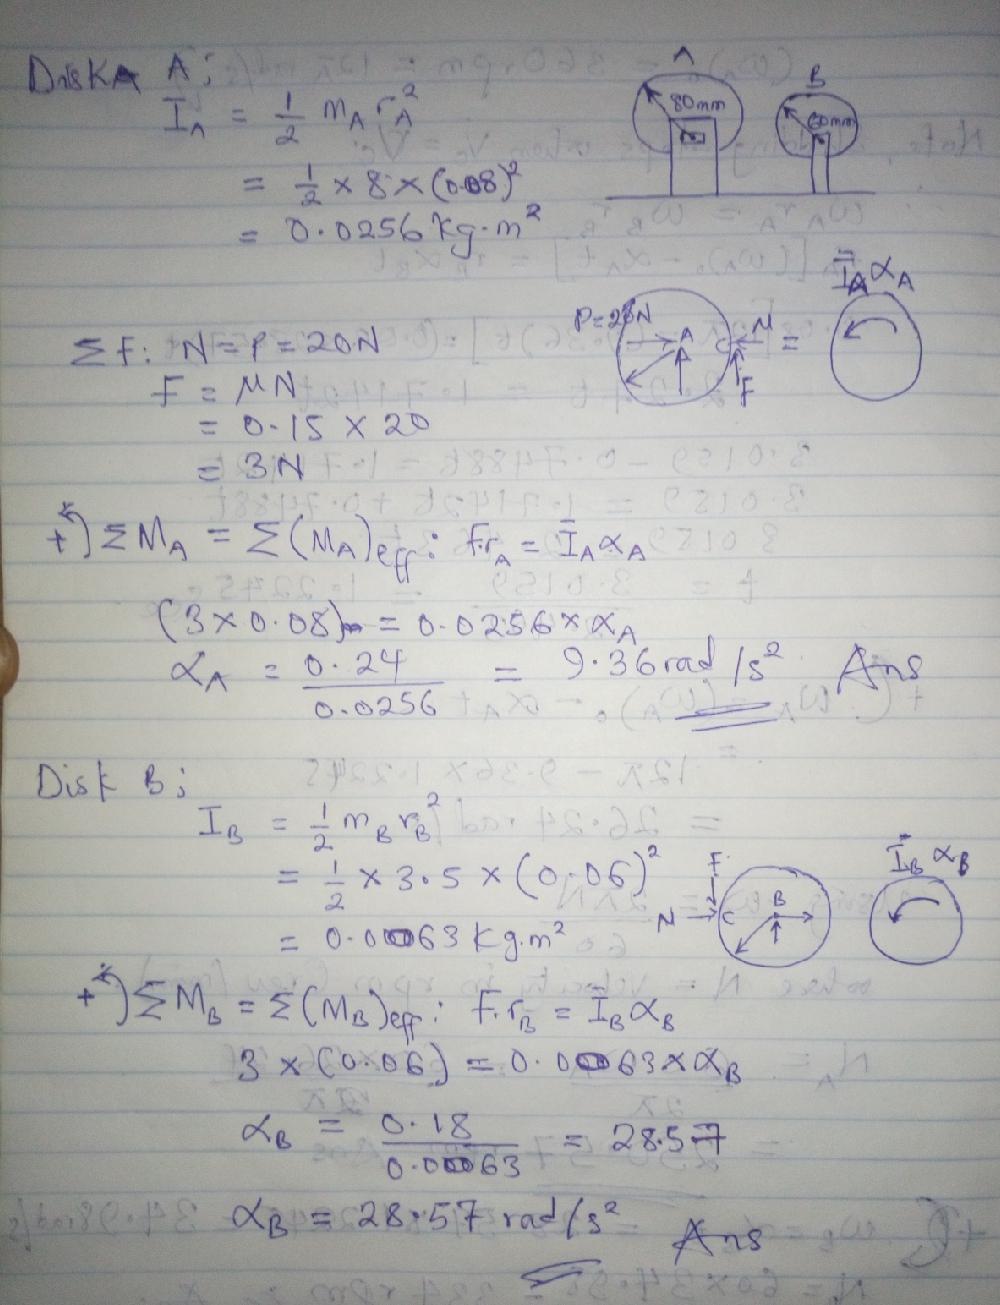 Disk A ;
I̅_A = 1/2 m_A r_A²
= 1/2 × 8 × (0.08)²
= 0.0256 kg.m²
A
B
80mm
60mm
ΣF: N = P = 20N
F = μN
= 0.15 × 20
= 3N
P=20N
A
C
N
=
F
I̅_A α_A
+↺ ΣM_A = Σ(M_A)eff: F.r_A = I̅_A α_A
(3×0.08) = 0.0256 × α_A
α_A = 0.24/0.0256 = 9.36 rad/s² Ans
Disk B ;
I_B = 1/2 m_B r_B²
= 1/2 × 3.5 × (0.06)²
= 0.0063 kg.m²
F
N
C
B
I̅_B α_B
+↺ ΣM_B = Σ(M_B)eff: F.r_B = I̅_B α_B
3 × (0.06) = 0.0063 × α_B
α_B = 0.18/0.0063 = 28.57
α_B = 28.57 rad/s² Ans